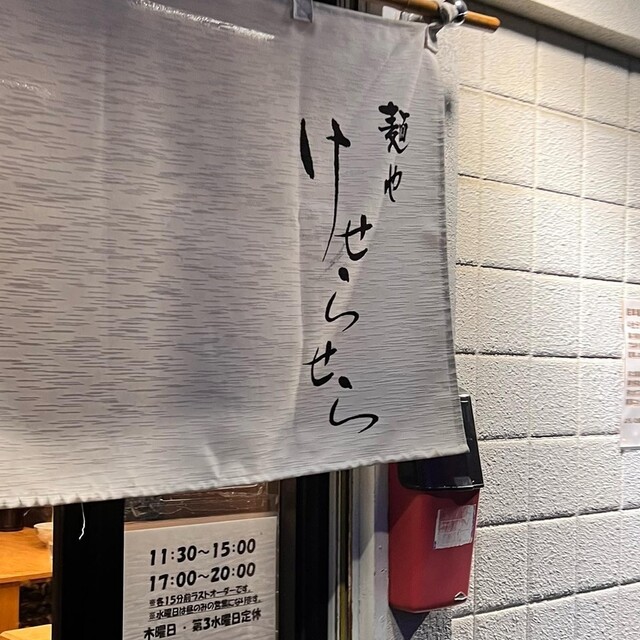 麺や
けせらせら
11:30～15:00
17:00～20:00
※各15分前ラストオーダーです。
※水曜日は昼のみの営業になります。
木曜日・第3水曜日定休